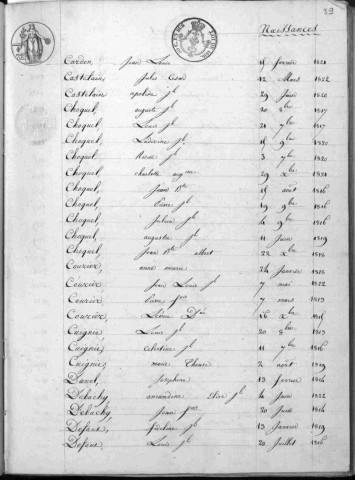 29
Naissances
Cardon, Jean Louis 11 février 1821
Castelain, Jules César 12 Mars 1822
Castelain apoline Jh 29 Juin 1820
Choquel, auguste Jh 20 8bre 1817
Choquel, Louis Jh 21 7bre 1817
Choquel, Ludovine Jh 15 9bre 1820
Choquel, Rosine Jh 3 7bre 1820
Choquel, charlotte augne 29 Xbre 1821
Choquel, Jean Bte 15 août 1816
Choquel, Pierre Jh 19 9bre 1816
Choquel, Julien Jh 4 9bre 1816
Choquel, augustin Jh 11 Juin 1819
Choquel, Jean Bte albert 22 Xbre 1818
Couvier, anne marie 24 Janvier 1818
Couvier, Jean Louis Jh 7 mai 1822
Couvier, Pierre Jh 7 mars 1813
Couvier, 16 Xbre
Cuignié, Louis Jh 20 8bre 1813
Cuignié, célestine Jh 11 7bre 1816
Cuignié, marie Thérèse 2 août 1819
Davel, Josephine 13 février 1816
Debachy, amandine Elise Jh 4 Juin 1822
Debachy, Jean 20 Juin 1816
Défaut, fidéline Jh 13 Janvier 1819
Défaut, Louis Jh 20 Juillet 1816